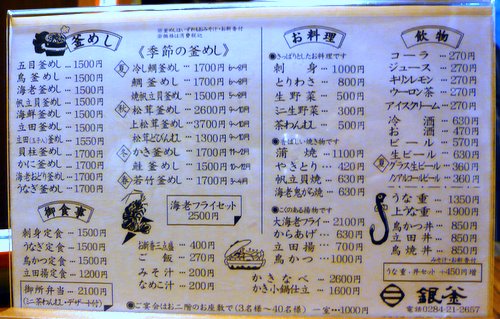 釜めし
五目釜めし…1500円
鳥釜めし…1500円
海老釜めし…1500円
帆立貝釜めし…1500円
海鮮釜めし…1500円
立田釜めし…1500円
貝柱釜めし…1700円
かに釜めし…1700円
海老おどり釜めし…1700円
うなぎ釜めし…1700円
御食事
刺身定食…1500円
うなぎ定食…1500円
鳥かつ定食…1500円
立田揚定食…1200円
御所弁当…2100円
(ミニ茶わんむし・デザート付)
《季節の釜めし》
夏
冷し鯛釜めし…1700円 6〜8月
鯛釜めし…1700円
焼帆立貝釜めし…1500円
秋
松茸釜めし…2600円
上松茸釜めし…3750円
松茸どびんむし…1300円
冬
かき釜めし…1700円
鮭釜めし…1500円
春
若竹釜めし…1700円
海老フライセット
2500円
お新香三点盛…400円
ご飯…270円
みそ汁…200円
なめこ汁…200円
お料理
さっぱりとしたお料理です
刺身…1000円
とりわさ…800円
生野菜…500円
ミニ生野菜…300円
茶わんむし…500円
香ばしい焼き物です
蒲焼…1100円
やきとり…420円
帆立貝焼…630円
海老鬼がら焼…630円
こくのある揚物です
大海老フライ…2100円
からあげ…630円
立田揚…700円
鳥かつ…1000円
かきなべ…2600円
かき小鍋仕立…1600円
飲物
コーラ…270円
ジュース…270円
キリンレモン…270円
ウーロン茶…270円
アイスクリーム…270円
冷酒…630円
お酒…470円
ビール…570円
生ビール…630円
夏
グラス生ビール…360円
ノンアルコールビール…360円
うな重…1350円
上うな重…1900円
鳥かつ丼…850円
立田丼…850円
鳥焼丼…850円
みそ汁・お新香付
うな重・丼セット+450円増
銀釜
電話0284-21-2657
ご宴会はお二階のお座敷で(3名様〜40名様) 一室…1000円